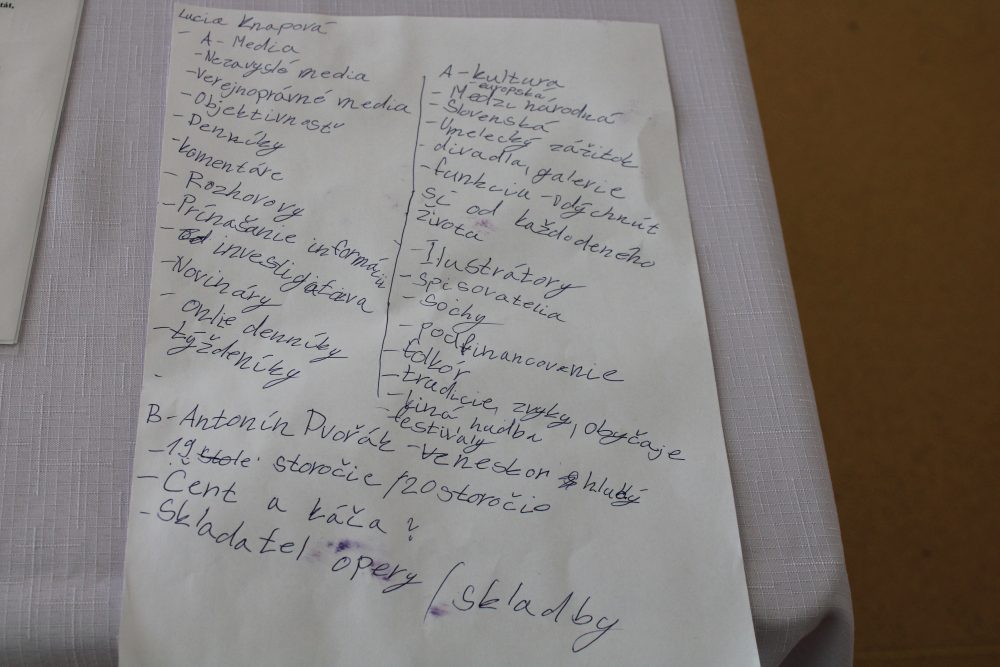 Lucia Knapová
- A - Media
- Nezavyslé media
- Verejnoprávné media
- Objektivnosť
- Denníky
- komentáre
- Rozhovory
- Prínašanie informácií
- investigatíva
- Novináry
- Onlie denníky
- týždeníky
-
A - kultura
- europská
- Medzinárodná
- Slovenská
- Umelecký zážitok
- divadla, galerie
- funkcia - odýchnút
si od každodeného
života
- Ilustrátory
- spisovatelia
- sochy
- podfinancovanie
- folkór
- tradície, zvyky, obyčaje
- kiná, hudba
- festivaly
B - Antonín Dvořák - neskor hluchý
- 19 storočie /20 storočio
- Čert a káča ?
- Skladatel opery / skladby